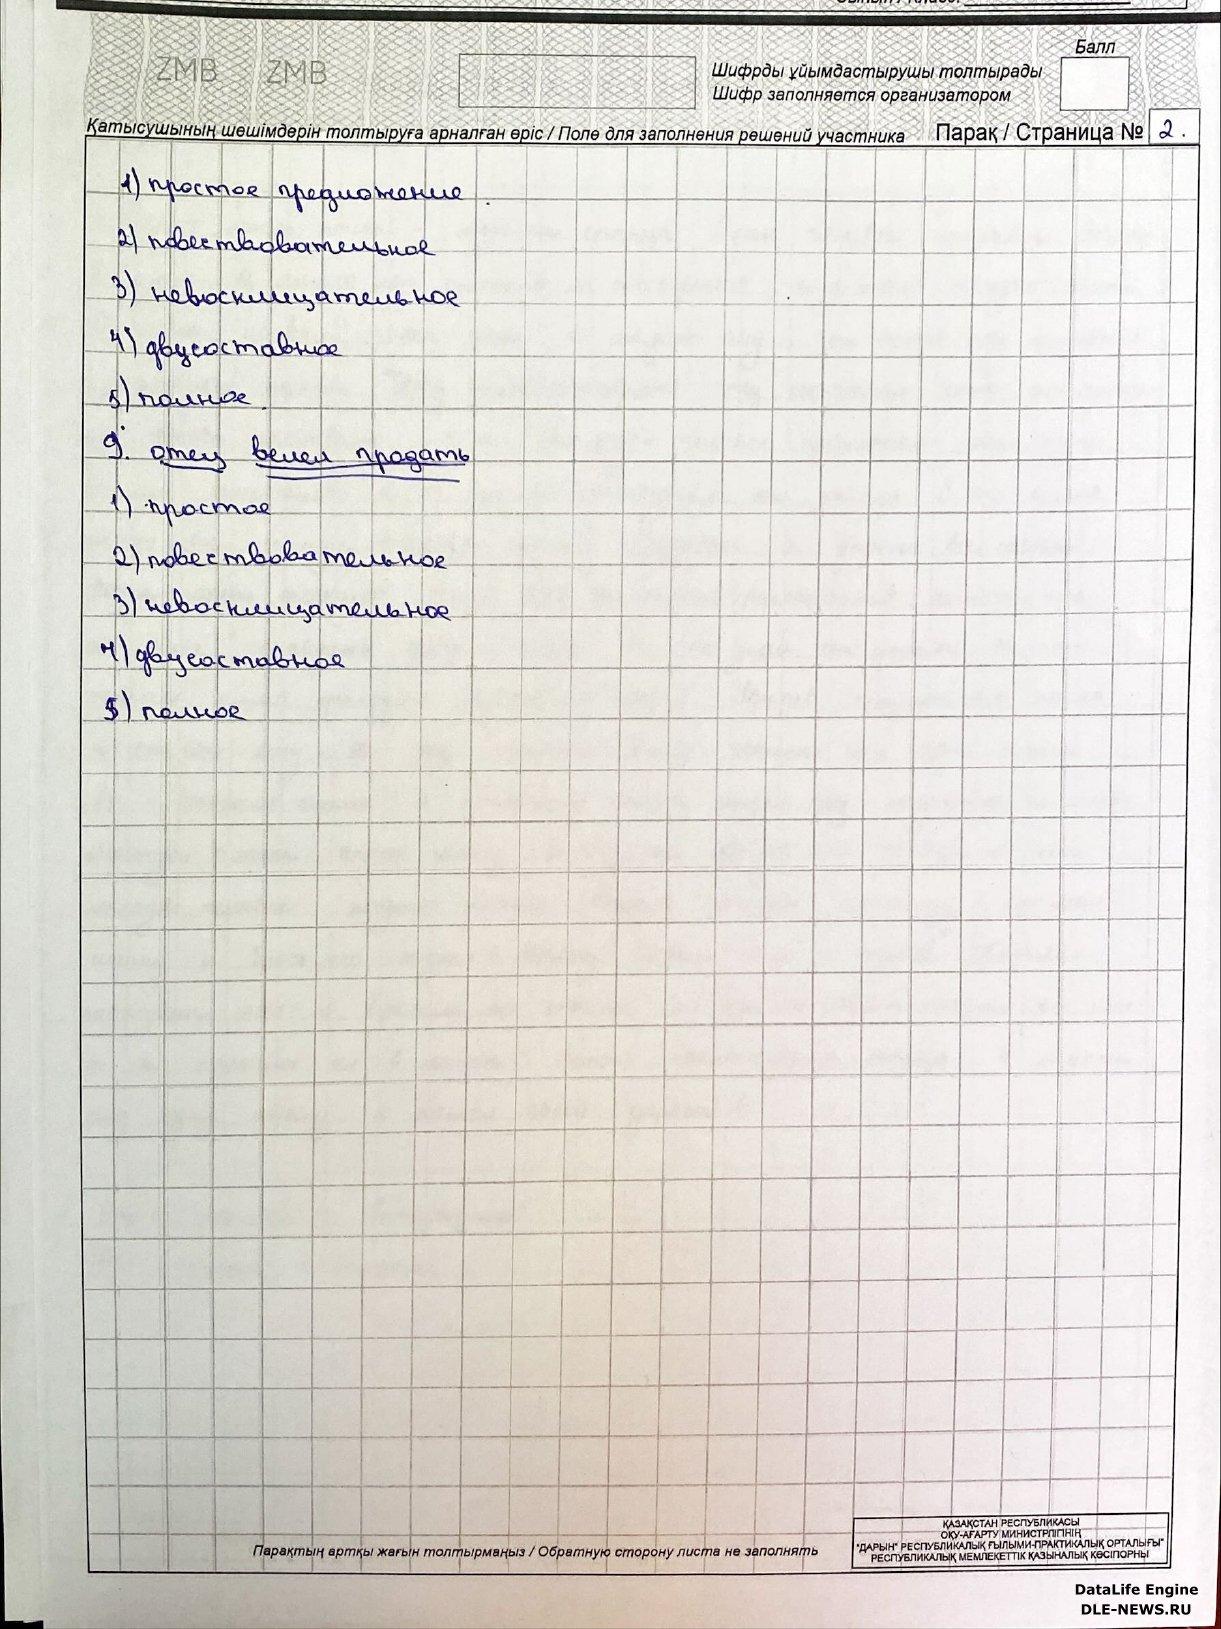 ZMB ZMB
Балл
Шифрды ұйымдастырушы толтырады
Шифр заполняется организатором
Қатысушының шешімдерін толтыруға арналған өріс / Поле для заполнения решений участника Парақ / Страница № 2.
1) простое предложение
2) повествовательное
3) невосклицательное
4) двусоставное
5) полное
9. отец велел продать
1) простое
2) повествовательное
3) невосклицательное
4) двусоставное
5) полное
Парақтың артқы жағын толтырмаңыз / Обратную сторону листа не заполнять
ҚАЗАҚСТАН РЕСПУБЛИКАСЫ
ОҚУ-АҒАРТУ МИНИСТРЛІГІНІҢ
"ДАРЫН" РЕСПУБЛИКАЛЫҚ ҒЫЛЫМИ-ПРАКТИКАЛЫҚ ОРТАЛЫҒЫ"
РЕСПУБЛИКАЛЫҚ МЕМЛЕКЕТТІК ҚАЗЫНАЛЫҚ КӘСІПОРНЫ
DataLife Engine
DLE-NEWS.RU